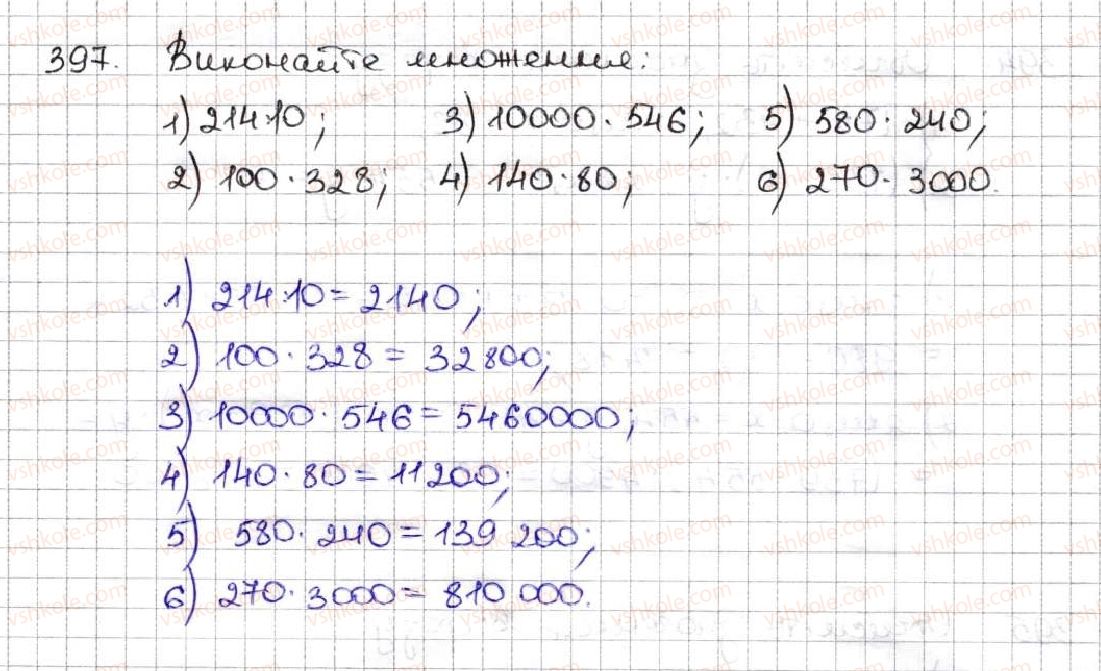 397. Виконайте множення:
1) 214·10; 3) 10000·546; 5) 580·240;
2) 100·328; 4) 140·80; 6) 270·3000.
1) 214·10=2140;
2) 100·328=32800;
3) 10000·546=5460000;
4) 140·80=11200;
5) 580·240=139 200;
6) 270·3000=810 000.